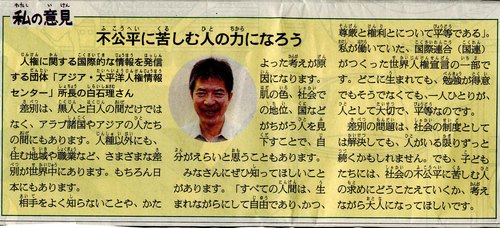 わたし いけん
私の意見
ふこうへい くる ひと ちから
不公平に苦しむ人の力になろう
人権に関する国際的な情報を発信
する団体「アジア・太平洋人権情報
センター」所長の白石理さん
差別は、黒人と白人の間だけでは
なく、アラブ諸国やアジアの人たち
の間にもあります。人種以外にも、
住む地域や職業など、さまざまな差
別が世界中にあります。もちろん日
本にもあります。
相手をよく知らないことや、かた
よった考えが原
因になります。
肌の色、社会で
の地位、国など
がちがう人を見
下すことで、自
分がえらいと思うこともあります。
みなさんにぜひ知ってほしいこと
があります。「すべての人間は、生
まれながらにして自由であり、かつ、
尊厳と権利とについて平等である」。
私が働いていた、国際連合（国連）
がつくった世界人権宣言の一部で
す。どこに生まれても、勉強が得意
でもそうでなくても、一人ひとりが、
人として大切で、平等なのです。
差別の問題は、社会の制度として
は解決しても、人がいる限りずっと
続くかもしれません。でも、子ども
たちには、社会の不公平に苦しむ人
の求めにどうこたえていくか、考え
ながら大人になってほしいです。